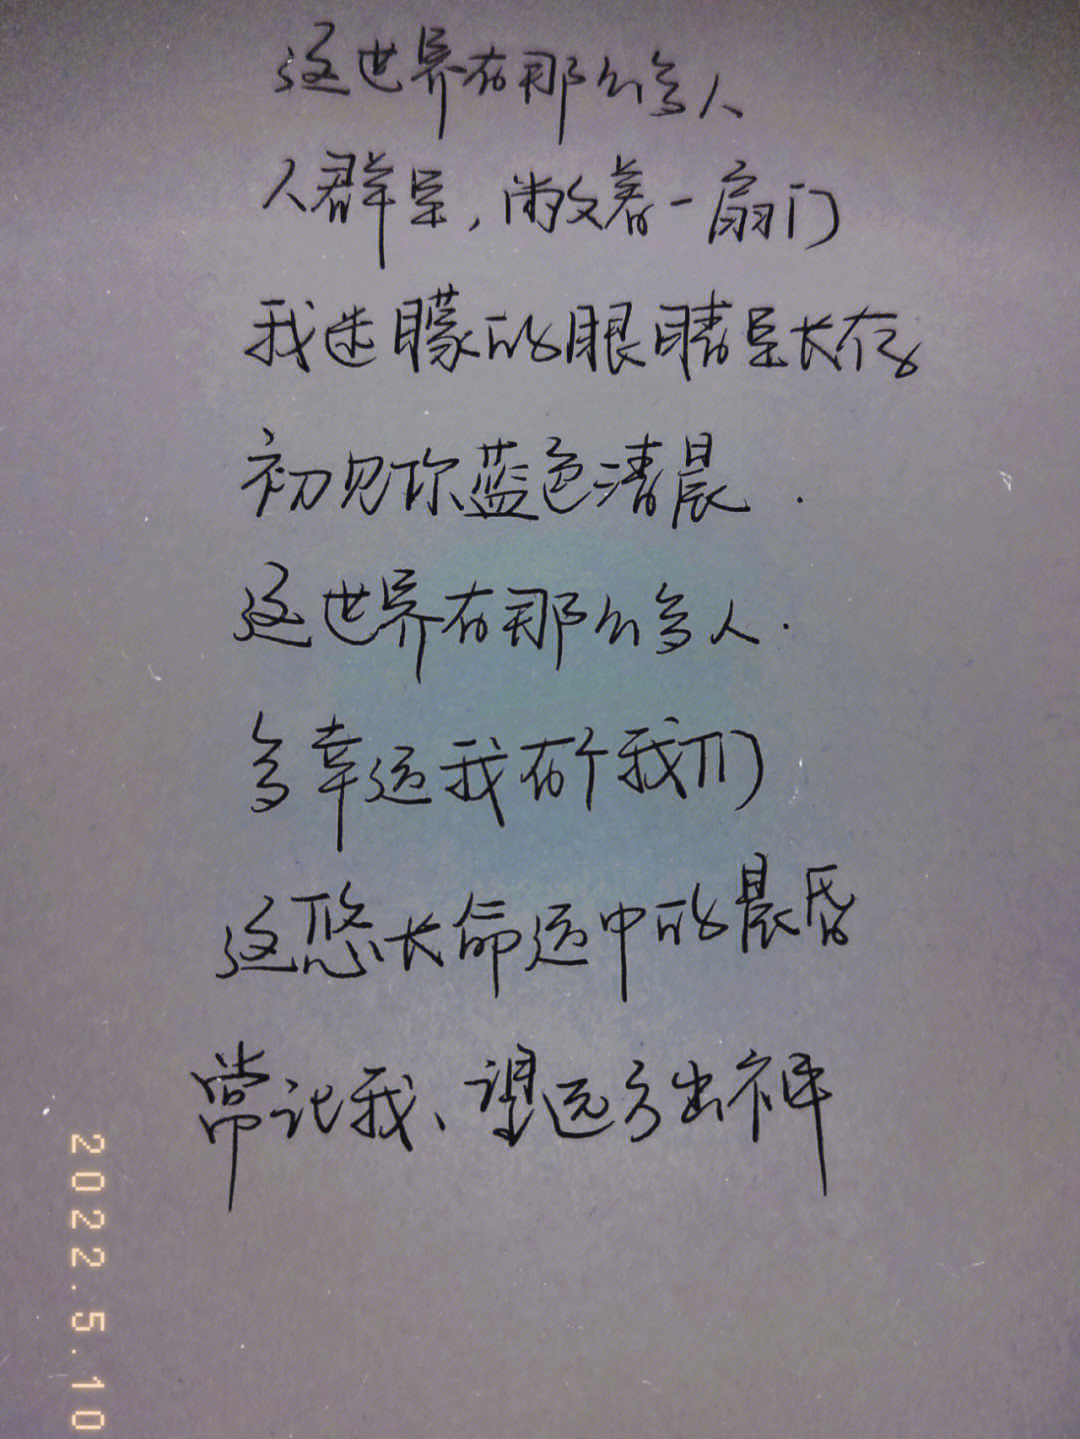 这世界有那么多人
人群里,敞着一扇门
我迷朦的眼睛里长存
初见你蓝色清晨.
这世界有那么多人.
多幸运我有个我们
这悠长命运中的晨昏
常让我、望远方出神
2022.5.10